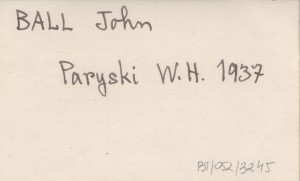 BALL John
Paryski W.H. 1937
BJ/052/3245